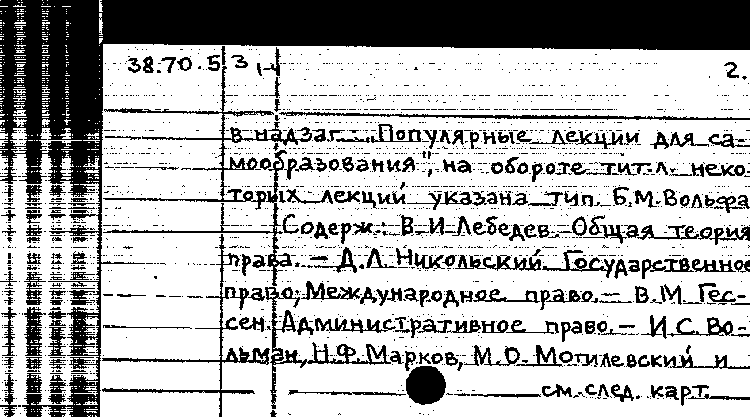 38.70.5.3 2.
в надзаг.: „Популярные лекции для са-
мообразования", на обороте тит.л. неко-
торых лекций указана тип. Б.М.Вольфа
Содерж.: В.И.Лебедев. Общая теория
права. — Д.Л.Никольский. Государственное
право; Международное право. — В.М Гес-
сен. Административное право. — И.С. Во-
льман, Н.Ф.Марков, М.О.Могилевский и
см.след. карт.